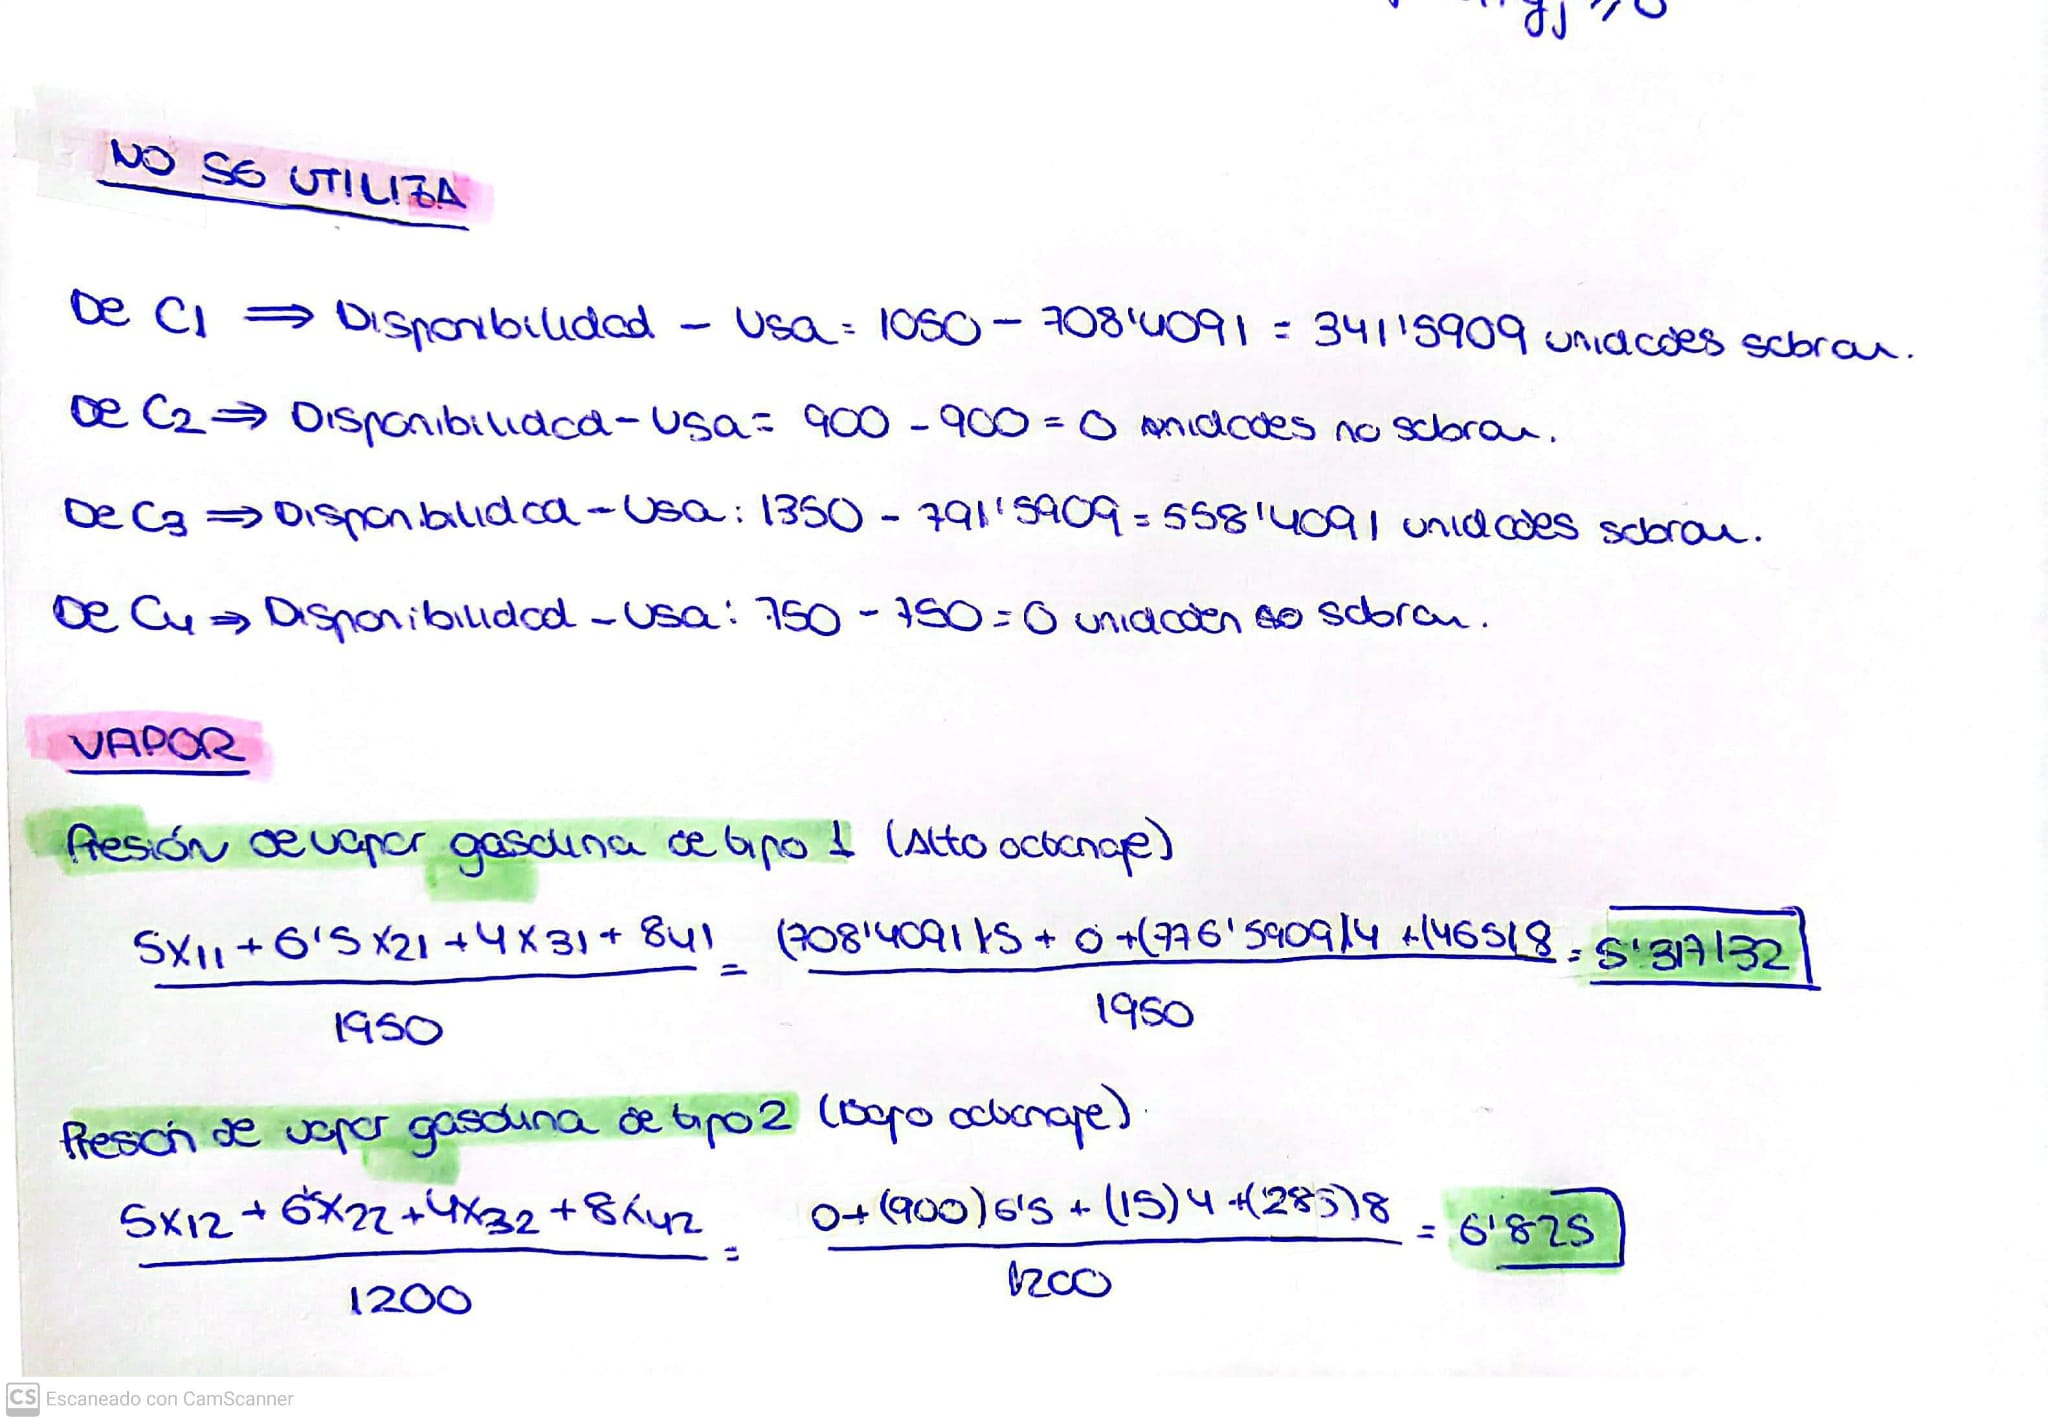 NO SE UTILIZA
De C1 ⇒ Disponibilidad - Usa = 1050 - 708'4091 = 341'5909 unidades sobran.
De C2 ⇒ Disponibilidad - Usa = 900 - 900 = 0 unidades no sobran.
De C3 ⇒ Disponibilidad - Usa: 1350 - 791'5909 = 558'4091 unidades sobran.
De C4 ⇒ Disponibilidad - Usa: 750 - 750 = 0 unidades no sobran.
VAPOR
Presión de vapor gasolina de tipo 1 (Alto octanaje)
5X11 + 6'5 X21 + 4X31 + 841 = (708'4091)5 + 0 + (776'5909)4 + (465)8 = 5'317132
1950 1950
Presión de vapor gasolina de tipo 2 (Bajo octanaje).
5X12 + 6'5X22 + 4X32 + 8X42 = 0 + (900)6'5 + (15)4 + (285)8 = 6'825
1200 1200
CS Escaneado con CamScanner